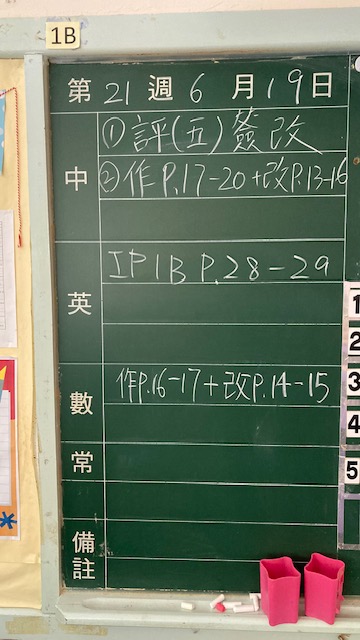 1B
第 21 週 6 月 19 日
中 ① 評(五)簽改
② 作P.17-20+改P.13-16
英 IP1B P.28-29
數 作P.16-17+改P.14-15
常
備註
1
2
3
4
5